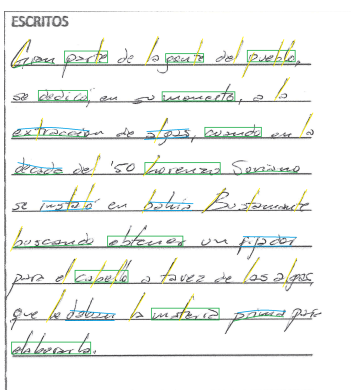 ESCRITOS
Gran parte de la gente del pueblo,
se dedicó, en su momento, a la
extracción de algas, cuando en la
década del '50 Lorenzo Soriano
se instaló en bahía Bustamante
buscando obtener un fijador
para el cabello a tavez de las algas,
que le daban la materia prima para
elaborarlo.